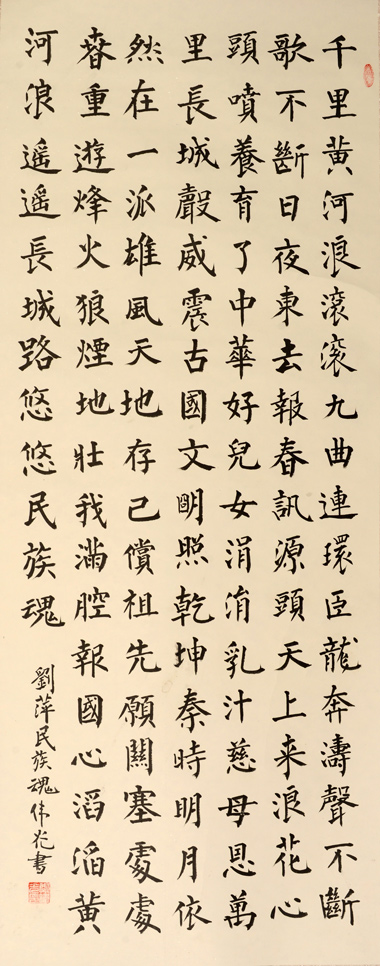 千里黄河浪滚滚九曲連環臣龍奔濤聲不斷
歌不斷日夜東去報春訊源頭天上来浪花心
頭噴養育了中華好兒女涓涓乳汁慈母恩萬
里長城聲威震古國文明照乾坤秦時明月依
然在一派雄風天地存已償祖先願關塞處處
春重遊烽火狼煙地壯我滿腔報國心滔滔黄
河浪遥遥長城路悠悠民族魂
劉萍民族魂伟書